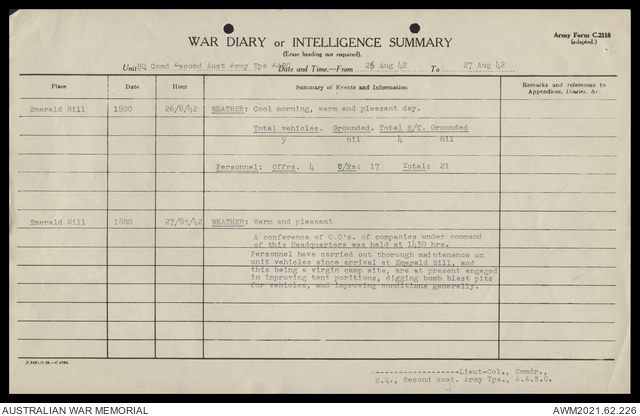 Army Form C.2118
WAR DIARY or INTELLIGENCE SUMMARY
(adapted.)
(Erase heading not required).
Unit HQ Comd Second Aust Army Tps AASC Date and Time.—From 26 Aug 42 To 27 Aug 42
Place Date Hour Summary of Events and Information Remarks and references to
Appendices, Diaries, &c
Emerald Hill 1800 26/8/42 WEATHER: Cool morning, warm and pleasant day.
Total vehicles. Grounded. Total M/C. Grounded
9 nil 4 nil
Personnel: Offrs. 4 O/Rs: 17 Total: 21
Emerald Hill 1800 27/8/42 WEATHER: Warm and pleasant
A conference of O.C's. of companies under command
of this Headquarters was held at 1430 hrs.
Personnel have carried out thorough maintenance on
unit vehicles since arrival at Emerald Hill, and
this being a virgin camp site, are at present engaged
in improving tent poritions, digging bomb blast pits
for vehicles, and improving conditions generally.
-----------------Lieut-Col., Comdr.,
H.Q., Second Aust. Army Tps., A.A.S.C.
AUSTRALIAN WAR MEMORIAL
AWM2021.62.226